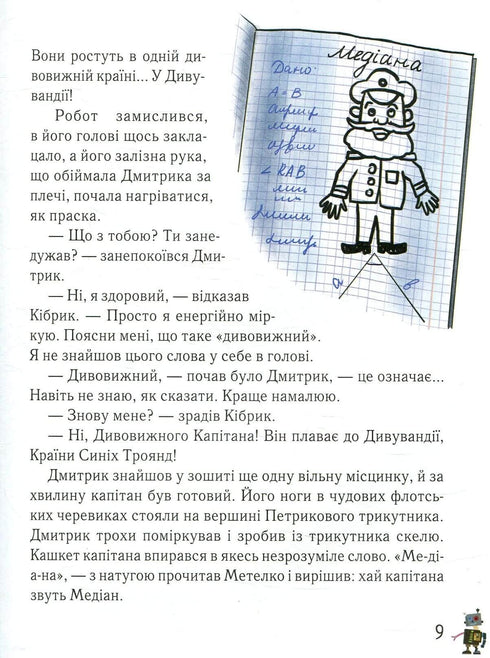 Вони ростуть в одній ди-
вовижній країні... У Диву-
вандії!
Робот замислився,
в його голові щось закла-
цало, а його залізна рука,
що обіймала Дмитрика за
плечі, почала нагріватися,
як праска.
— Що з тобою? Ти зане-
дужав? — занепокоївся Дми-
трик.
— Ні, я здоровий, — відказав
Кібрик. — Просто я енергійно мір-
кую. Поясни мені, що таке «дивовижний».
Я не знайшов цього слова у себе в голові.
— Дивовижний, — почав було Дмитрик, — це означає...
Навіть не знаю, як сказати. Краще намалюю.
— Знову мене? — зрадів Кібрик.
— Ні, Дивовижного Капітана! Він плаває до Дивувандії,
Країни Синіх Троянд!
Дмитрик знайшов у зошиті ще одну вільну місцинку, й за
хвилину капітан був готовий. Його ноги в чудових флотсь-
ких черевиках стояли на вершині Петрикового трикутника.
Дмитрик трохи поміркував і зробив із трикутника скелю.
Кашкет капітана впирався в якесь незрозуміле слово. «Ме-ді-
а-на», — з натугою прочитав Метелко і вирішив: хай капітана
звуть Медіан.
Медіана
Дано:
A = B
∠ KAB
a
в
9